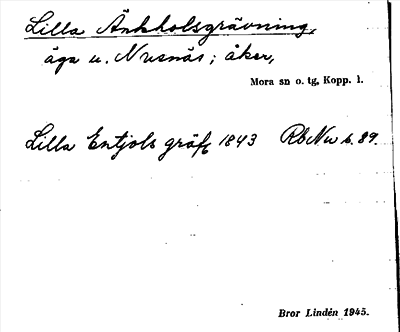 Lilla Änkholsgrävning,
äga u. Nusnäs; åker,
Mora sn o. tg, Kopp. l.
Lilla Entjols gräfg 1843 RbNu s. 89.
Bror Lindén 1945.